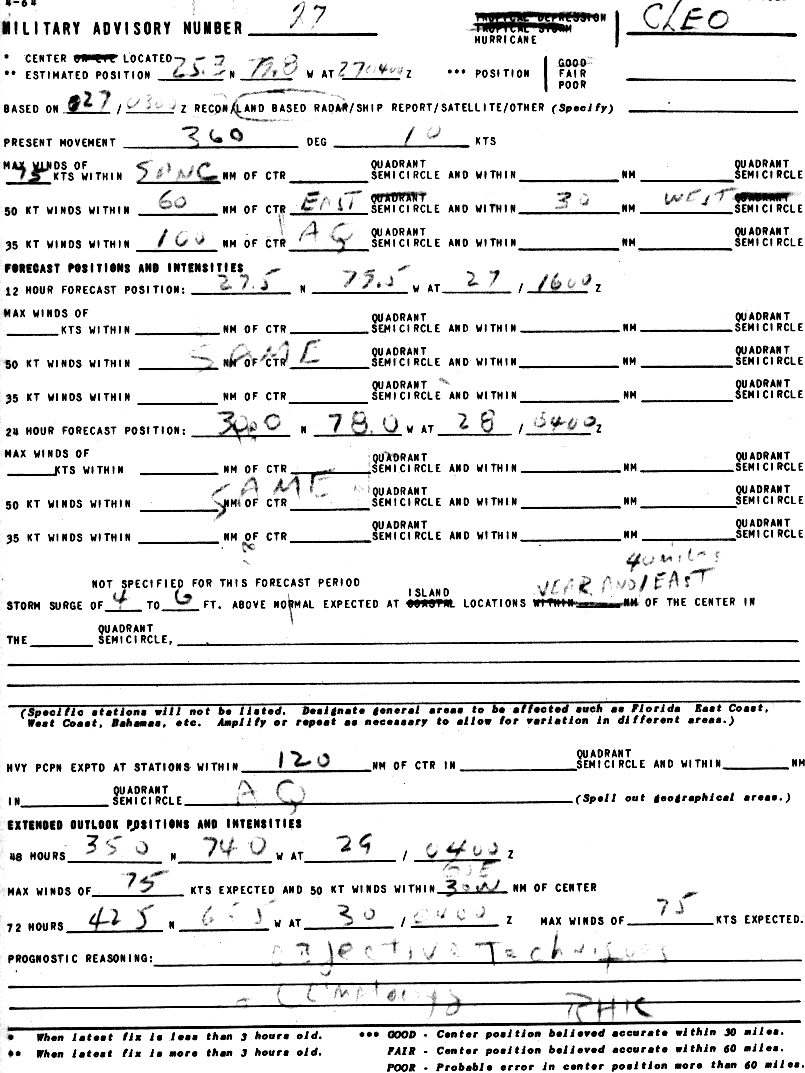 4-64
MILITARY ADVISORY NUMBER 27 TROPICAL DEPRESSION CLEO
TROPICAL STORM
HURRICANE
* CENTER OR EYE LOCATED
** ESTIMATED POSITION 25.3 N 79.8 W AT 270400 Z *** POSITION GOOD
FAIR
POOR
BASED ON 27 / 0300 Z RECON/LAND BASED RADAR/SHIP REPORT/SATELLITE/OTHER (Specify)
PRESENT MOVEMENT 360 DEG 10 KTS
MAX WINDS OF QUADRANT QUADRANT
75 KTS WITHIN NM OF CTR SEMICIRCLE AND WITHIN NM SEMICIRCLE
QUADRANT QUADRANT
50 KT WINDS WITHIN 60 NM OF CTR EAST SEMICIRCLE AND WITHIN 30 NM WEST SEMICIRCLE
QUADRANT QUADRANT
35 KT WINDS WITHIN 100 NM OF CTR AQ SEMICIRCLE AND WITHIN NM SEMICIRCLE
FORECAST POSITIONS AND INTENSITIES
12 HOUR FORECAST POSITION: 27.5 N 79.5 W AT 27 / 1600 Z
MAX WINDS OF QUADRANT QUADRANT
KTS WITHIN NM OF CTR SEMICIRCLE AND WITHIN NM SEMICIRCLE
SAME QUADRANT QUADRANT
50 KT WINDS WITHIN NM OF CTR SEMICIRCLE AND WITHIN NM SEMICIRCLE
QUADRANT QUADRANT
35 KT WINDS WITHIN NM OF CTR SEMICIRCLE AND WITHIN NM SEMICIRCLE
24 HOUR FORECAST POSITION: 30.0 N 78.0 W AT 28 / 0400 Z
MAX WINDS OF QUADRANT QUADRANT
KTS WITHIN NM OF CTR SEMICIRCLE AND WITHIN NM SEMICIRCLE
SAME QUADRANT QUADRANT
50 KT WINDS WITHIN NM OF CTR SEMICIRCLE AND WITHIN NM SEMICIRCLE
QUADRANT QUADRANT
35 KT WINDS WITHIN NM OF CTR SEMICIRCLE AND WITHIN NM SEMICIRCLE
40 miles
NOT SPECIFIED FOR THIS FORECAST PERIOD ISLAND NEAR AND/EAST
STORM SURGE OF 4 TO 6 FT. ABOVE NORMAL EXPECTED AT COASTAL LOCATIONS WITHIN NM OF THE CENTER IN
QUADRANT
THE SEMICIRCLE,
(Specific stations will not be listed. Designate general areas to be affected such as Florida East Coast,
West Coast, Bahamas, etc. Amplify or repeat as necessary to allow for variation in different areas.)
QUADRANT
HVY PCPN EXPTD AT STATIONS WITHIN 120 NM OF CTR IN SEMICIRCLE AND WITHIN NM
QUADRANT
IN SEMICIRCLE AQ (Spell out geographical areas.)
EXTENDED OUTLOOK POSITIONS AND INTENSITIES
48 HOURS 350 N 740 W AT 29 / 0400 Z
60E
MAX WINDS OF 75 KTS EXPECTED AND 50 KT WINDS WITHIN 30W NM OF CENTER
72 HOURS 425 N 655 W AT 30 / 0400 Z MAX WINDS OF 75 KTS EXPECTED.
PROGNOSTIC REASONING: Objective Techniques
Climatology
* When latest fix is less than 3 hours old. *** GOOD - Center position believed accurate within 30 miles.
** When latest fix is more than 3 hours old. FAIR - Center position believed accurate within 60 miles.
POOR - Probable error in center position more than 60 miles.